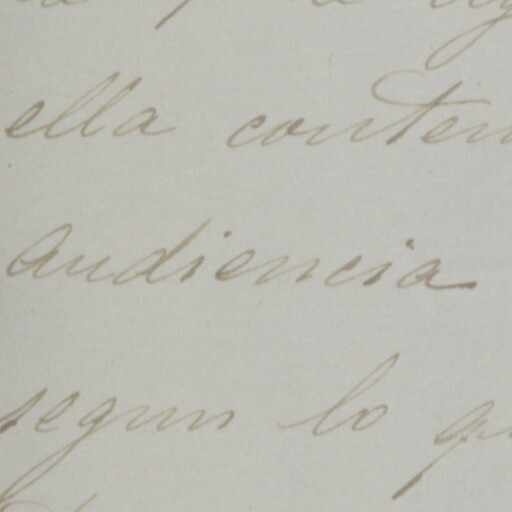 ella conten
Audiencia
segun lo qu